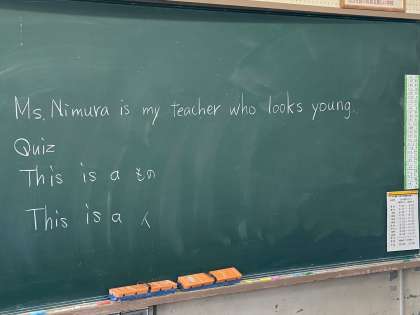 Ms. Nimura is my teacher who looks young.
Quiz
This is a もの
This is a 人